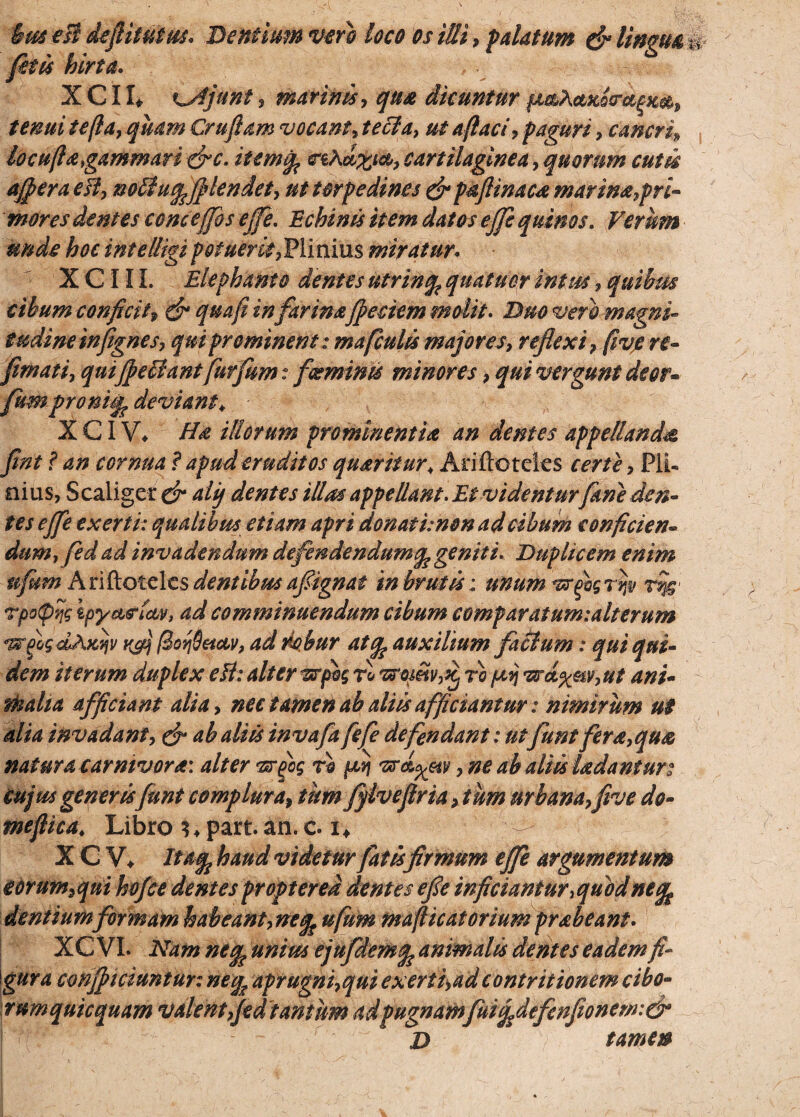 bus est destitutus. Dentium verò loco os illi, palatum & lingua
setis hirta.
XCII. Ajunt, marinis, quæ dicuntur μαλακόσαρκα,
tenui testa, quàm Crustam vocant, tecta, ut astaci, paguri, cancri,
locustæ, gammari &c. itemq́ꝫ σελάχια, cartilaginea, quorum cutis
aspera est, noctuq́ꝫ splendet, ut torpedines & pastinacæ marinæ, pri-
mores dentes concessos esse. Echinis item datos esse quinos. Verùm
unde hoc intelligi potuerit, Plinius miratur.
XCIII. Elephanto dentes utrinq́ꝫ quatuor intus, quibus
cibum conficit, & quasi in farinæ speciem molit. Duo verò magni-
tudine insignes, qui prominent: masculis majores, reflexi, sive re-
simati, qui spectant sursum: fœminis minores, qui vergunt deor-
sum proniq́ꝫ deviant.
XCIV. Hæ illorum prominentiæ an dentes appellandæ
sint? an cornua? apud eruditos quæritur. Aristoteles certè, Pli-
nius, Scaliger & alij dentes illas appellant. Et videntur sanè den-
tes esse exerti: qualibus etiam apri donati: non ad cibum conficien-
dum, sed ad invadendum defendendumq́ꝫ geniti. Duplicem enim
usum Aristoteles dentibus aßignat in brutis: unum πρὸς τὴν τῆς
τροφῆς ἐργασίαν, ad comminuendum cibum comparatum: alterum
πρὸς ἀλκὴν καὶ βοήθειαν, ad robur atq́ꝫ auxilium factum: qui qui-
dem iterum duplex est: alter πρὸς τὸ ποιεῖν, καὶ τὸ μὴ πάχειν, ut ani-
malia afficiant alia, nec tamen ab aliis afficiantur: nimirùm ut
alia invadant, & ab aliis invasa sese defendant: ut sunt feræ, quæ
natura carnivoræ: alter πρὸς τὸ μὴ πάχειν, ne ab aliis lædantur:
cujus generis sunt complura, tùm sylvestria, tùm urbana, sive do-
mestica. Libro 3. part. an. c. 1.
XCV. Itaq́ꝫ haud videtur satis firmum esse argumentum
eorum, qui hosce dentes propterea dentes esse inficiantur, quòd neq́ꝫ
dentium formam habeant, neq́ꝫ usum masticatorium præbeant.
XCVI. Nam neq́ꝫ unius ejusdemq́ꝫ animalis dentes eadem fi-
gura conspiciuntur: neq́ꝫ aprugni, qui exerti, ad contritionem cibo-
rum quicquam valent, sed tantùm ad pugnam suiq́ꝫ defensionem: &
D tamen